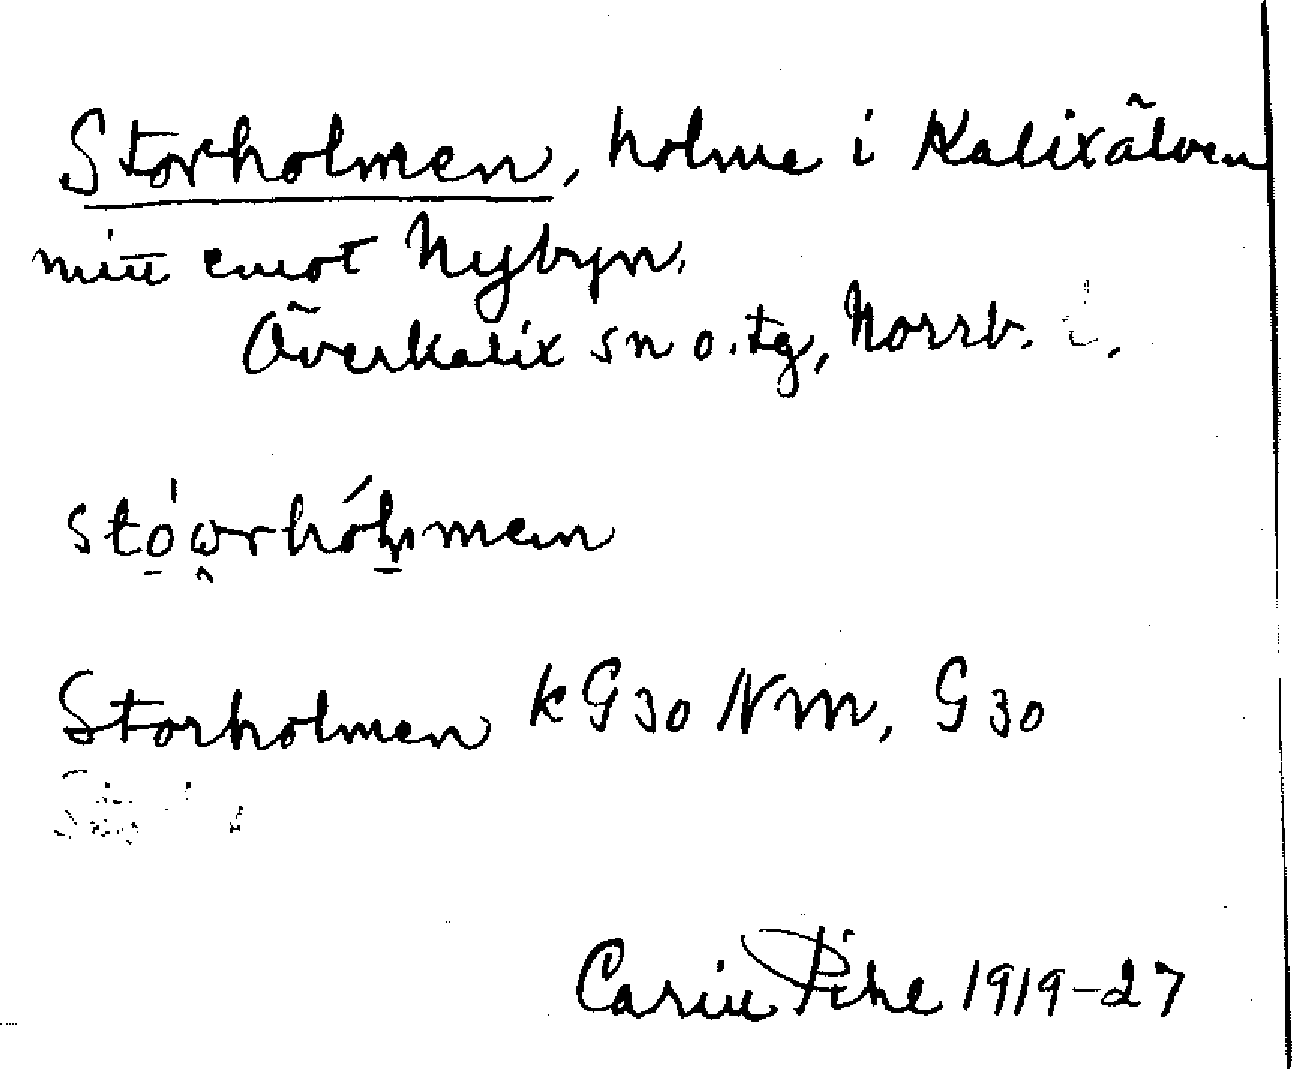 Storholmen, holme i Kalixälven
mitt emot Nybyn.
Överkalix sn o. tg, Norrb.
Storholmen k G 30 NM, G 30
Carin Pihl 1919-27